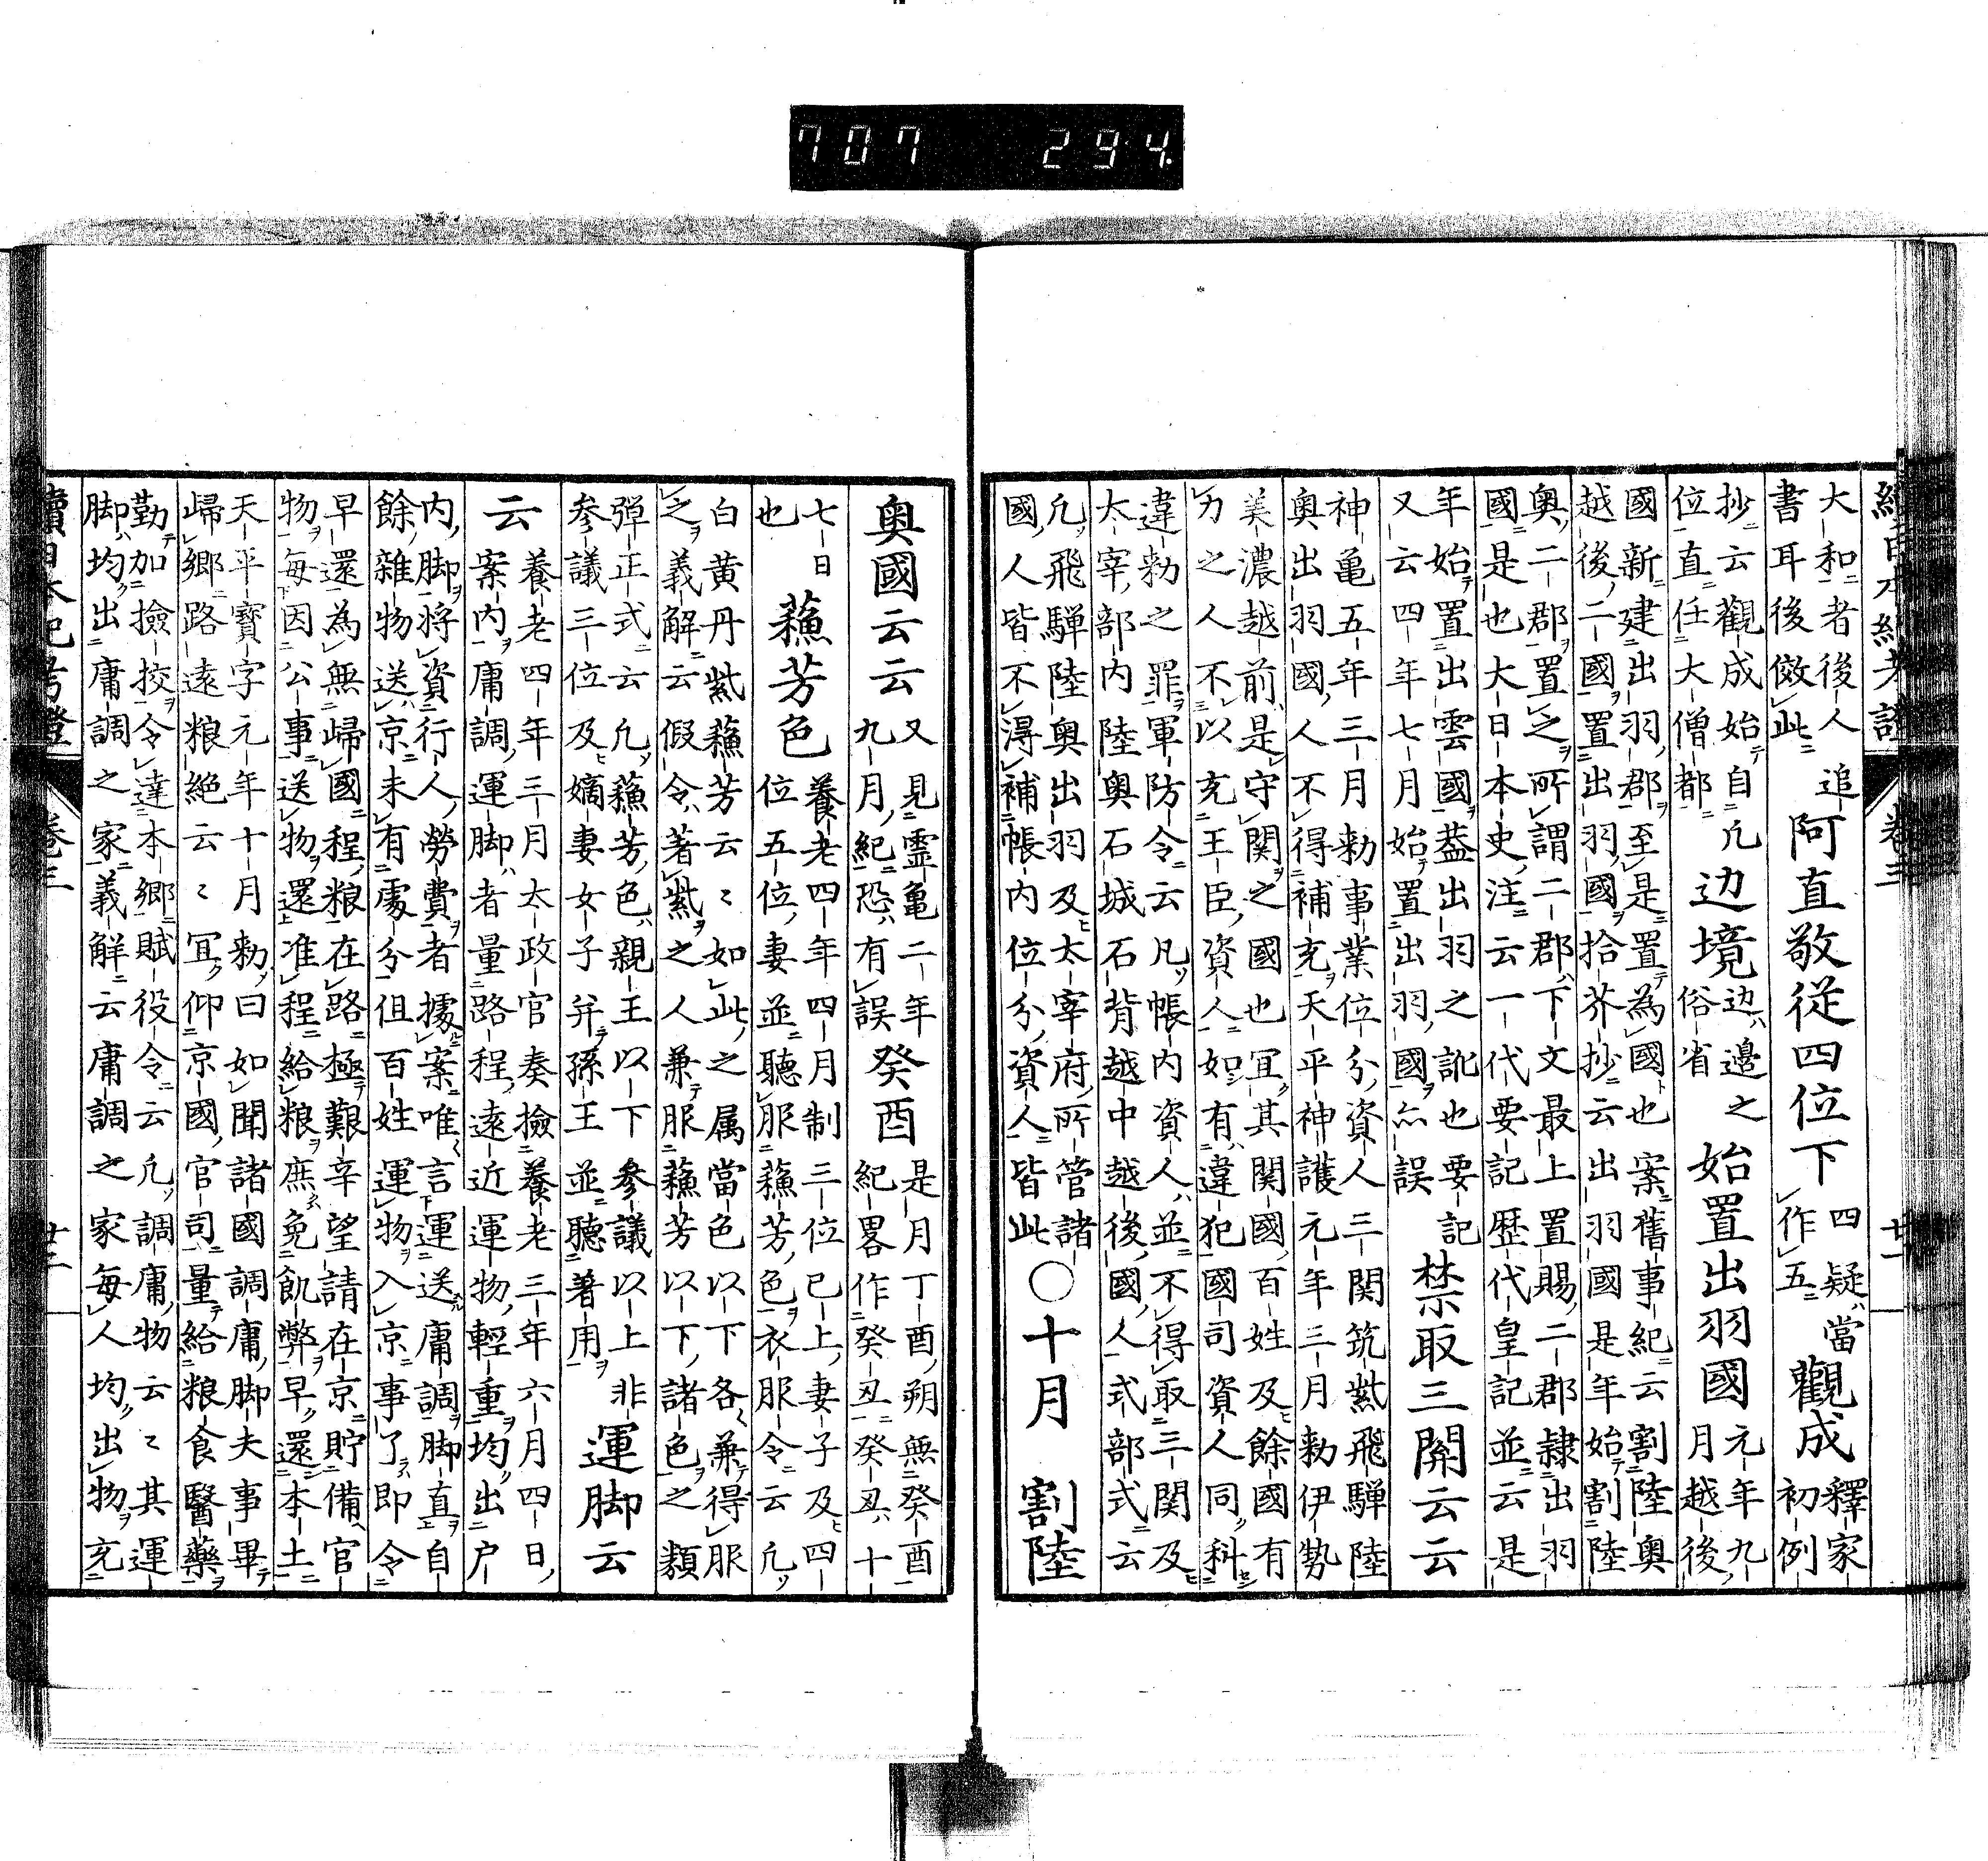 707 294
續日本紀考證 卷三 廿一
大和者後人追
書耳後倣此
阿直敬從四位下
四疑當
作五
觀成
釋家
初例
抄云觀成始自凡
位直任大僧都
边境
边邊之
俗省
始置出羽國
元年九
月越後
國新建出羽郡至是置為國也案舊事紀云割陸奥
越後二國置出羽國拾芥抄云出羽國是年始割陸
奥二郡置之所謂二郡下文最上置賜二郡隷出羽
國是也大日本史注云一代要記歴代皇記並云是
年始置出雲國蓋出羽之訛也要記
又云四年七月始置出羽國亦誤
禁取三関云云
神亀五年三月勅事業位分資人三関筑紫飛騨陸
奥出羽國人不得補充天平神護元年三月勅伊勢
美濃越前是守関之國也冝其関國百姓及餘國有
力之人不以充王臣資人如有違犯國司資人同科
違勅之罪軍防令云凡帳内資人並不得取三関及
太宰部内陸奥石城石背越中越後國人式部式云
凡飛騨陸奥出羽及太宰府所管諸
國人皆不得補帳内位分資人皆此
○十月 割陸
奥國云云
又見霊亀二年
九月紀恐有誤
癸酉
是月丁酉朔無癸酉
紀畧作癸丑癸丑十
七日
也
蘓芳色
養老四年四月制三位已上妻子及四
位五位妻並聽服蘓芳色衣服令云凡
白黄丹紫蘓芳云〻如此之属當色以下各兼得服
之義解云假令著紫之人兼服蘓芳以下諸色之類
弾正式云凡蘓芳色親王以下参議以上非
参議三位及嫡妻女子并孫王並聽著用
運脚云
云
養老四年三月太政官奏撿養老三年六月四日
案内庸調運脚者量路程遠近運物輕重均出户
内脚將資行人勞費者據案唯言運送庸調脚直自
餘雜物送京未有處分但百姓運物入京事了即令
早還為無歸國程粮在路極艱辛望請在京貯備官
物毎因公事送物還准程給粮庶免飢弊早還本土
天平寳字元年十月勅曰如聞諸國調庸脚夫事畢
歸郷路遠粮絶云〻冝仰京國官司量給粮食醫藥
勤加撿挍令達本郷賦役令云凡調庸物云〻其運
脚均出庸調之家義解云庸調之家毎人均出物充
續日本紀考證 卷三 廿二